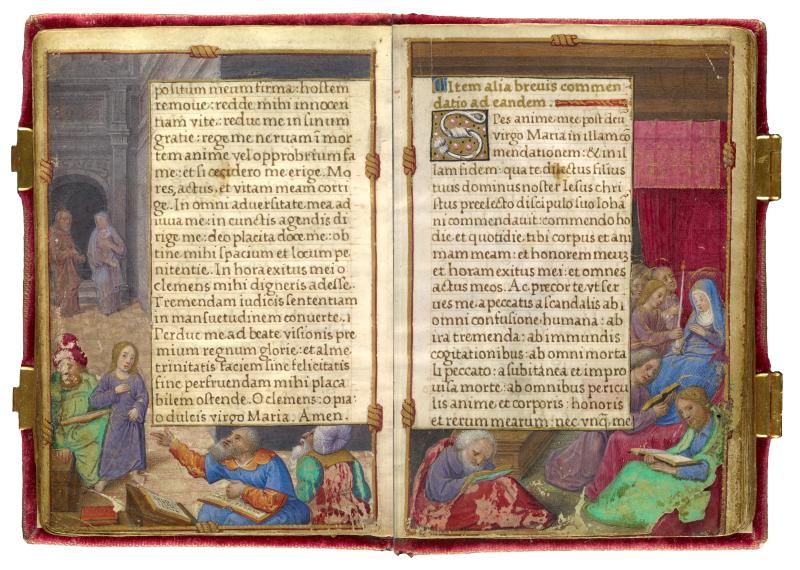 positum meum firma: hostem
remoue: redde mihi innocen
tiam vite: reduc me in sinum
gratie: rege me ne ruam ī mor
tem anime vel opprobrium fa
me: et si cecidero me erige. Mo
res, actus, et vitam meam corri
ge. In omni aduersitate mea ad
iuua me: in cunctis agendis di
rige me: deo placita doce me: ob
tine mihi spacium et locum pe
nitentie. In hora exitus mei o
clemens mihi digneris adesse.
Tremendam iudicis sententiam
in mansuetudinem conuerte. 1
Perduc me ad beate visionis pre
mium regnum glorie: et alme
trinitatis faciem sine felicitatis
fine perfruendam mihi placa
bilem ostende. O clemens: o pia:
o dulcis virgo Maria. Amen.
Item alia breuis commen
datio ad eandem.
Spes anime mee post deū
virgo Maria in illam cō
mendationem: & in il
lam fidem: qua te dilectus filius
tuus dominus noster Iesus chri
stus preelecto discipulo suo Iohā
ni commendauit: commendo ho
die et quotidie tibi corpus et an
mam meam: et honorem meuz
et horam exitus mei: et omnes
actus meos. Ac precor te vt ser
ues me a peccatis a scandalis ab
omni confusione humana: ab
ira tremenda: ab immundis
cogitationibus: ab omni morta
li peccato: a subitanea et impro
uisa morte: ab omnibus pericu
lis anime et corporis: honoris
et rerum mearum: nec vnq̄ me